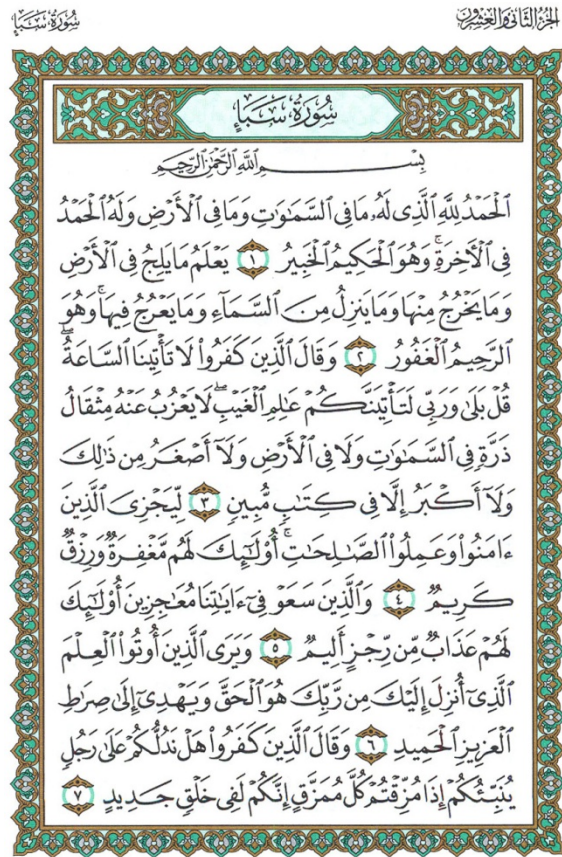 الجزء الثاني والعشرون
سورة سبأ
سُورَةُ سَبَإٍ
بِسْمِ ٱللَّهِ ٱلرَّحْمَٰنِ ٱلرَّحِيمِ
ٱلْحَمْدُ لِلَّهِ ٱلَّذِى لَهُۥ مَا فِى ٱلسَّمَٰوَٰتِ وَمَا فِى ٱلْأَرْضِ وَلَهُ ٱلْحَمْدُ
فِى ٱلْأَخِرَةِ ۚ وَهُوَ ٱلْحَكِيمُ ٱلْخَبِيرُ ١ يَعْلَمُ مَا يَلِجُ فِى ٱلْأَرْضِ
وَمَا يَخْرُجُ مِنْهَا وَمَا يَنزِلُ مِنَ ٱلسَّمَآءِ وَمَا يَعْرُجُ فِيهَا ۚ وَهُوَ
ٱلرَّحِيمُ ٱلْغَفُورُ ٢ وَقَالَ ٱلَّذِينَ كَفَرُوا۟ لَا تَأْتِينَا ٱلسَّاعَةُ ۖ
قُلْ بَلَىٰ وَرَبِّى لَتَأْتِيَنَّكُمْ عَٰلِمِ ٱلْغَيْبِ ۖ لَا يَعْزُبُ عَنْهُ مِثْقَالُ
ذَرَّةٍ فِى ٱلسَّمَٰوَٰتِ وَلَا فِى ٱلْأَرْضِ وَلَآ أَصْغَرُ مِن ذَٰلِكَ
وَلَآ أَكْبَرُ إِلَّا فِى كِتَٰبٍ مُّبِينٍ ٣ لِّيَجْزِىَ ٱلَّذِينَ
ءَامَنُوا۟ وَعَمِلُوا۟ ٱلصَّٰلِحَٰتِ ۚ أُو۟لَٰٓئِكَ لَهُم مَّغْفِرَةٌ وَرِزْقٌ
كَرِيمٌ ٤ وَٱلَّذِينَ سَعَوْ فِىٓ ءَايَٰتِنَا مُعَٰجِزِينَ أُو۟لَٰٓئِكَ
لَهُمْ عَذَابٌ مِّن رِّجْزٍ أَلِيمٌ ٥ وَيَرَى ٱلَّذِينَ أُوتُوا۟ ٱلْعِلْمَ
ٱلَّذِىٓ أُنزِلَ إِلَيْكَ مِن رَّبِّكَ هُوَ ٱلْحَقَّ وَيَهْدِىٓ إِلَىٰ صِرَٰطِ
ٱلْعَزِيزِ ٱلْحَمِيدِ ٦ وَقَالَ ٱلَّذِينَ كَفَرُوا۟ هَلْ نَدُلُّكُمْ عَلَىٰ رَجُلٍ
يُنَبِّئُكُمْ إِذَا مُزِّقْتُمْ كُلَّ مُمَزَّقٍ إِنَّكُمْ لَفِى خَلْقٍ جَدِيدٍ ٧